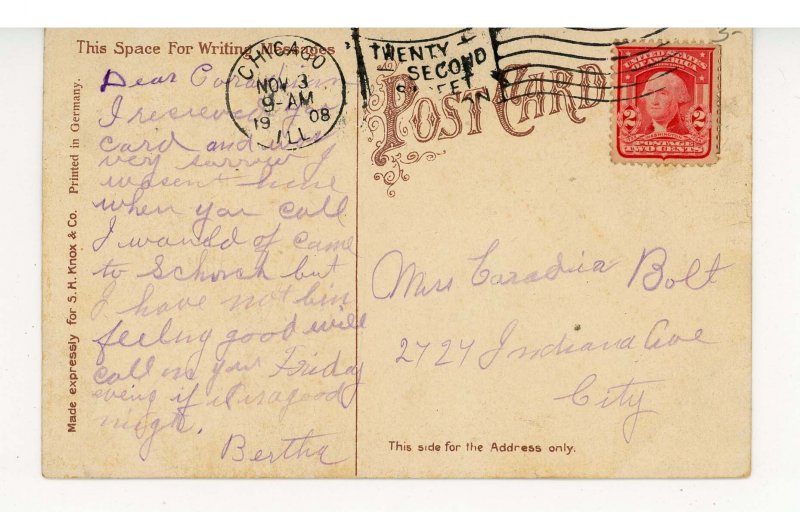 This Space For Writing Messages
CHICAGO
NOV 3
9-AM
1908
ILL.
TWENTY
SECOND
POST CARD
UNITED STATES
OF AMERICA
2 2
WASHINGTON
POSTAGE
TWO CENTS
Made expressly for S. H. Knox & Co. Printed in Germany.
Dear
I resieved
card and was
very sorrow I
wasent home
when you call
I wanld of came
to Schorch but
I have not bin
feeling good will
call on you Friday
eving if it is a good
night.
Bertha
Miss Caradica Bolt
2727 Indiana Ave
City
This side for the Address only.